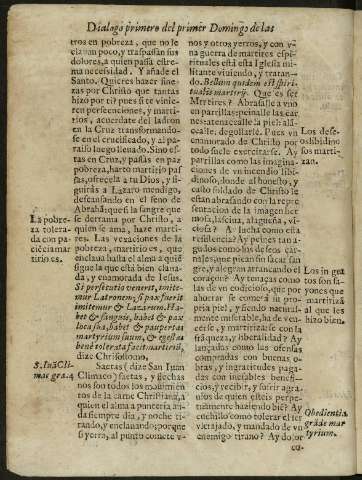 Dialogo primero del primer Domingo de las
tros en pobreza, que no le
clauan poco, y traspassan sus
dolores, a quien passa estre-
ma necessidad. Y añade el
Santo. Quieres hazer fine-
zas por Christo que tantas
hizo por ti? pues si te vinie-
ren persecuciones, y marti-
rios, acuerdate del ladron
en la Cruz transformando-
se en el crucificado, y al pa-
raiso luego lleuado. Sino es-
tas en Cruz, y passas en paz
pobreza, harto martirio pas
sas, ofrecela a Dios, y si-
guirás a Lazaro mendigo,
descansando en el seno de
Abrahã: que si la sangre que
se derrama por Christo, a
quien se ama, haze marti-
res. Las vexaciones de la
pobreza, martirio es, que
enclaua hasta el alma a quiẽ
sigue la que está bien claua-
da, y enamorada de Iesus.
Si persecutio venerit, imite-
mur Latronem; si pax fuerit
imitemur & Lazarum. Ha-
bet & sanguis, habet & pax
loca sua, habet & paupertas
martyrium suum, & egestas
bene tolerata facit martyriũ,
dize Chrisostomo.
Saetas (dize San Iuan
Climaco) saetas, y flechas
nos son todos los mouimien
tos de la carne Christiana, a
quien el alma a punteria an-
da siempre dia, y noche ti-
rando, y enclauando; porque
si yerra, al punto comete v-
La pobre-
za tolera-
da con pa-
ciẽcia mar
tirio es.
S. Iuã Cli-
mac gra. 4
nos y otros yerros, y con v-
na guerra de martires espi-
rituales está esta Iglesia mi-
litante viuiendo, y tratan-
do. Bellum quoddam est spiri-
tualis martyrij. Que es ser
Martires? Abrasarle a vno
en parrillas; peinalle las car
nes; atenacealle la piel; asa-
ealle; degollarle. Pues vn
enamorado de Christo por
todo suele exercitarse. Ay
parrillas como las imagina-
ciones de vn incendio libi-
dinoso, donde al honesto, y
casto soldado de Christo le
estan abrasando con la repre
sentacion de la imagen her
mosa, lasciua, alagueña, vi-
ciosa? Ay lucha como esta
resistencia? Ay peines tan a-
gudos como los deseos car-
nales, que pican sin sacar san
gre, y alegran arrancando el
coraçon? Ay tenaças como
las de vn codicioso, que por
ahorrar se come a si su pro-
pia piel, y siendo natural-
mente miserable, ha de ven-
cerse, y luchar como con la
flaqueza, y libertalidad? Ay
lançadas como las ofensas
compradas con buenas o-
bras, y ingratitudes pagadas
con inestables benefi-
cios, y recibir, y sufrir agra-
uios de quien esteis perpe-
tuamente haziendo biẽ? Ay
dolor como tolerar el ter
uerajado, y mandado de vn
enemigo tirano? Ay dolor
co-
Los dese-
os libidino
los marti-
zan.
Los in gra
tos son sa-
yones que
martiriza
al que les
hizo bien.
Obediẽtia
grãde mar
tyrium.